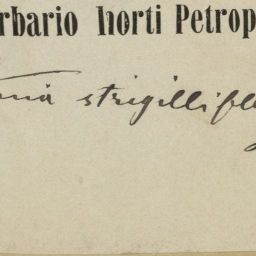 rbario horti Petrop
strigillifl